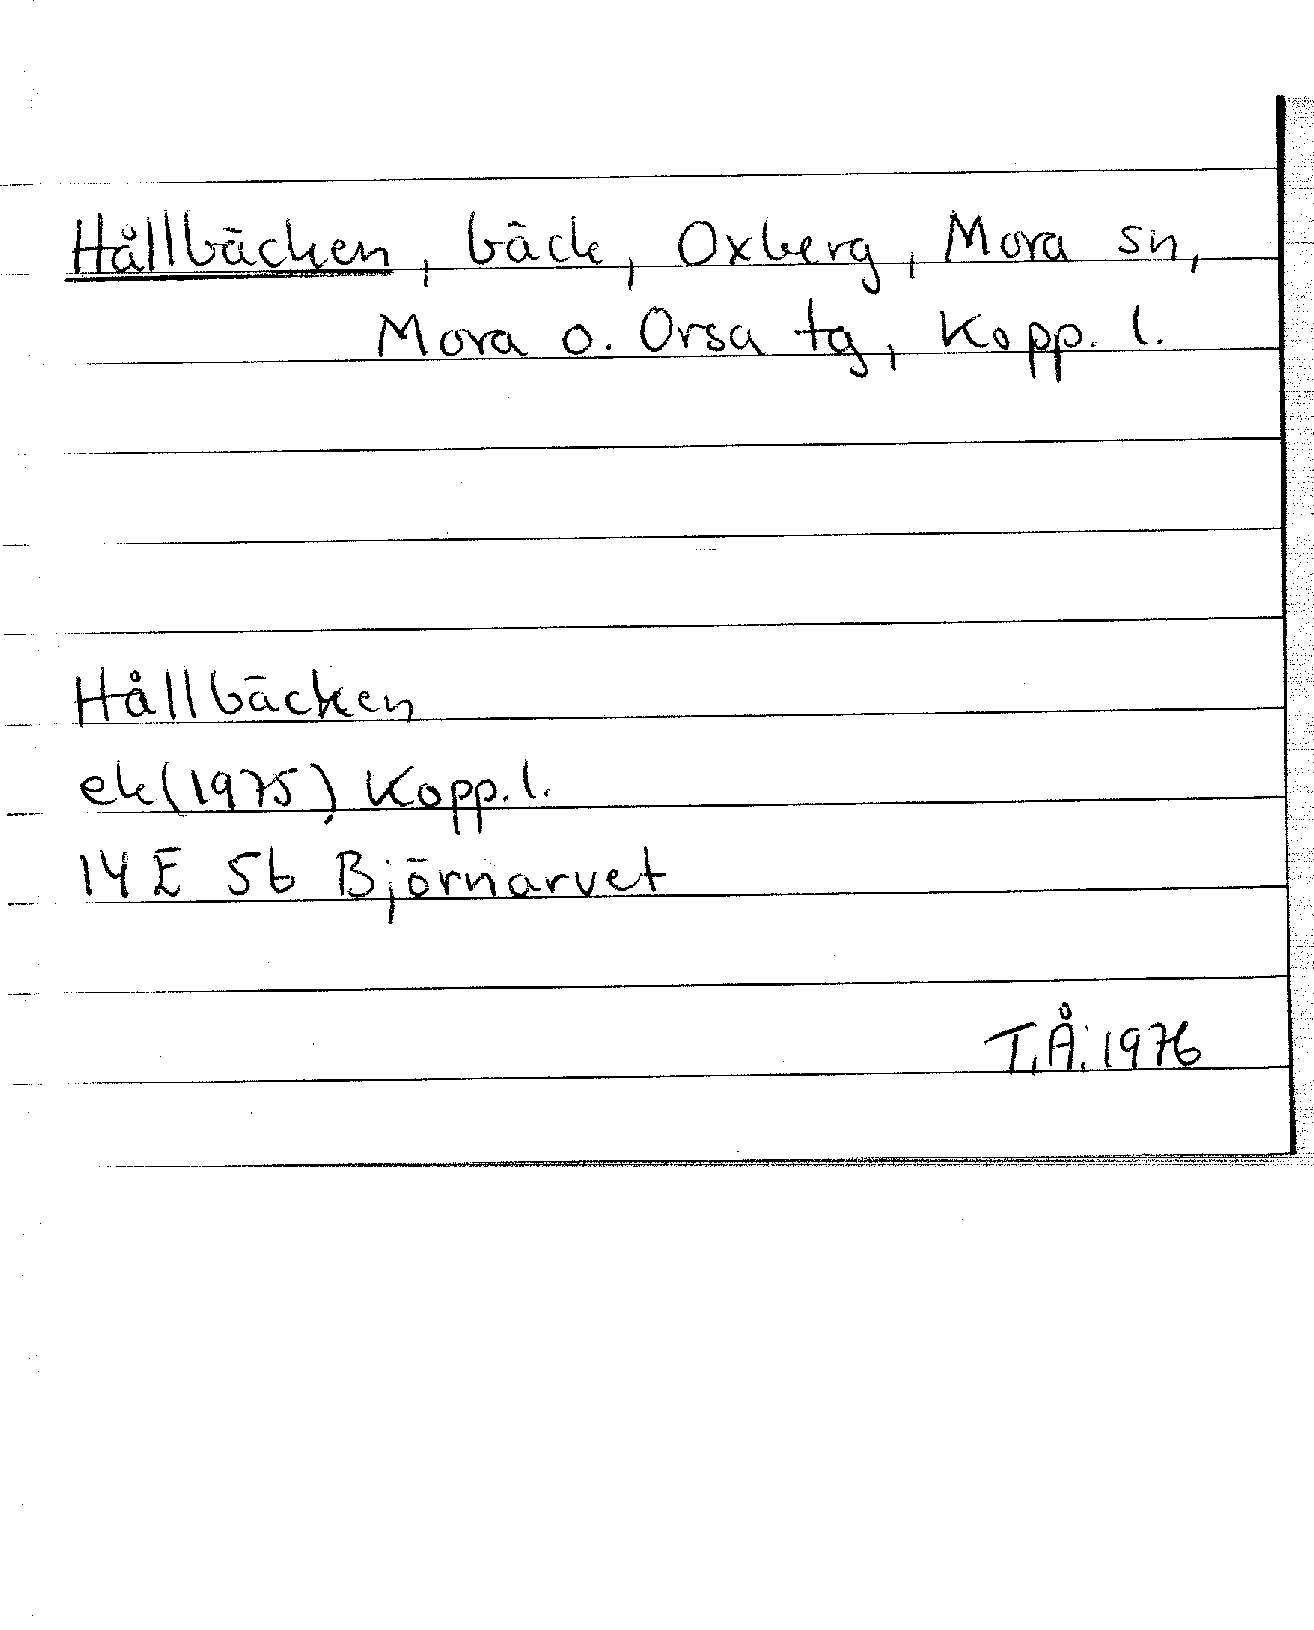 Hållbäcken, bäck, Oxberg, Mora sn,
Mora o. Orsa tg, Kopp. l.
Hållbäcken
ek(1975), Kopp. l.
14 E 5b Björnarvet
T.Å. 1976